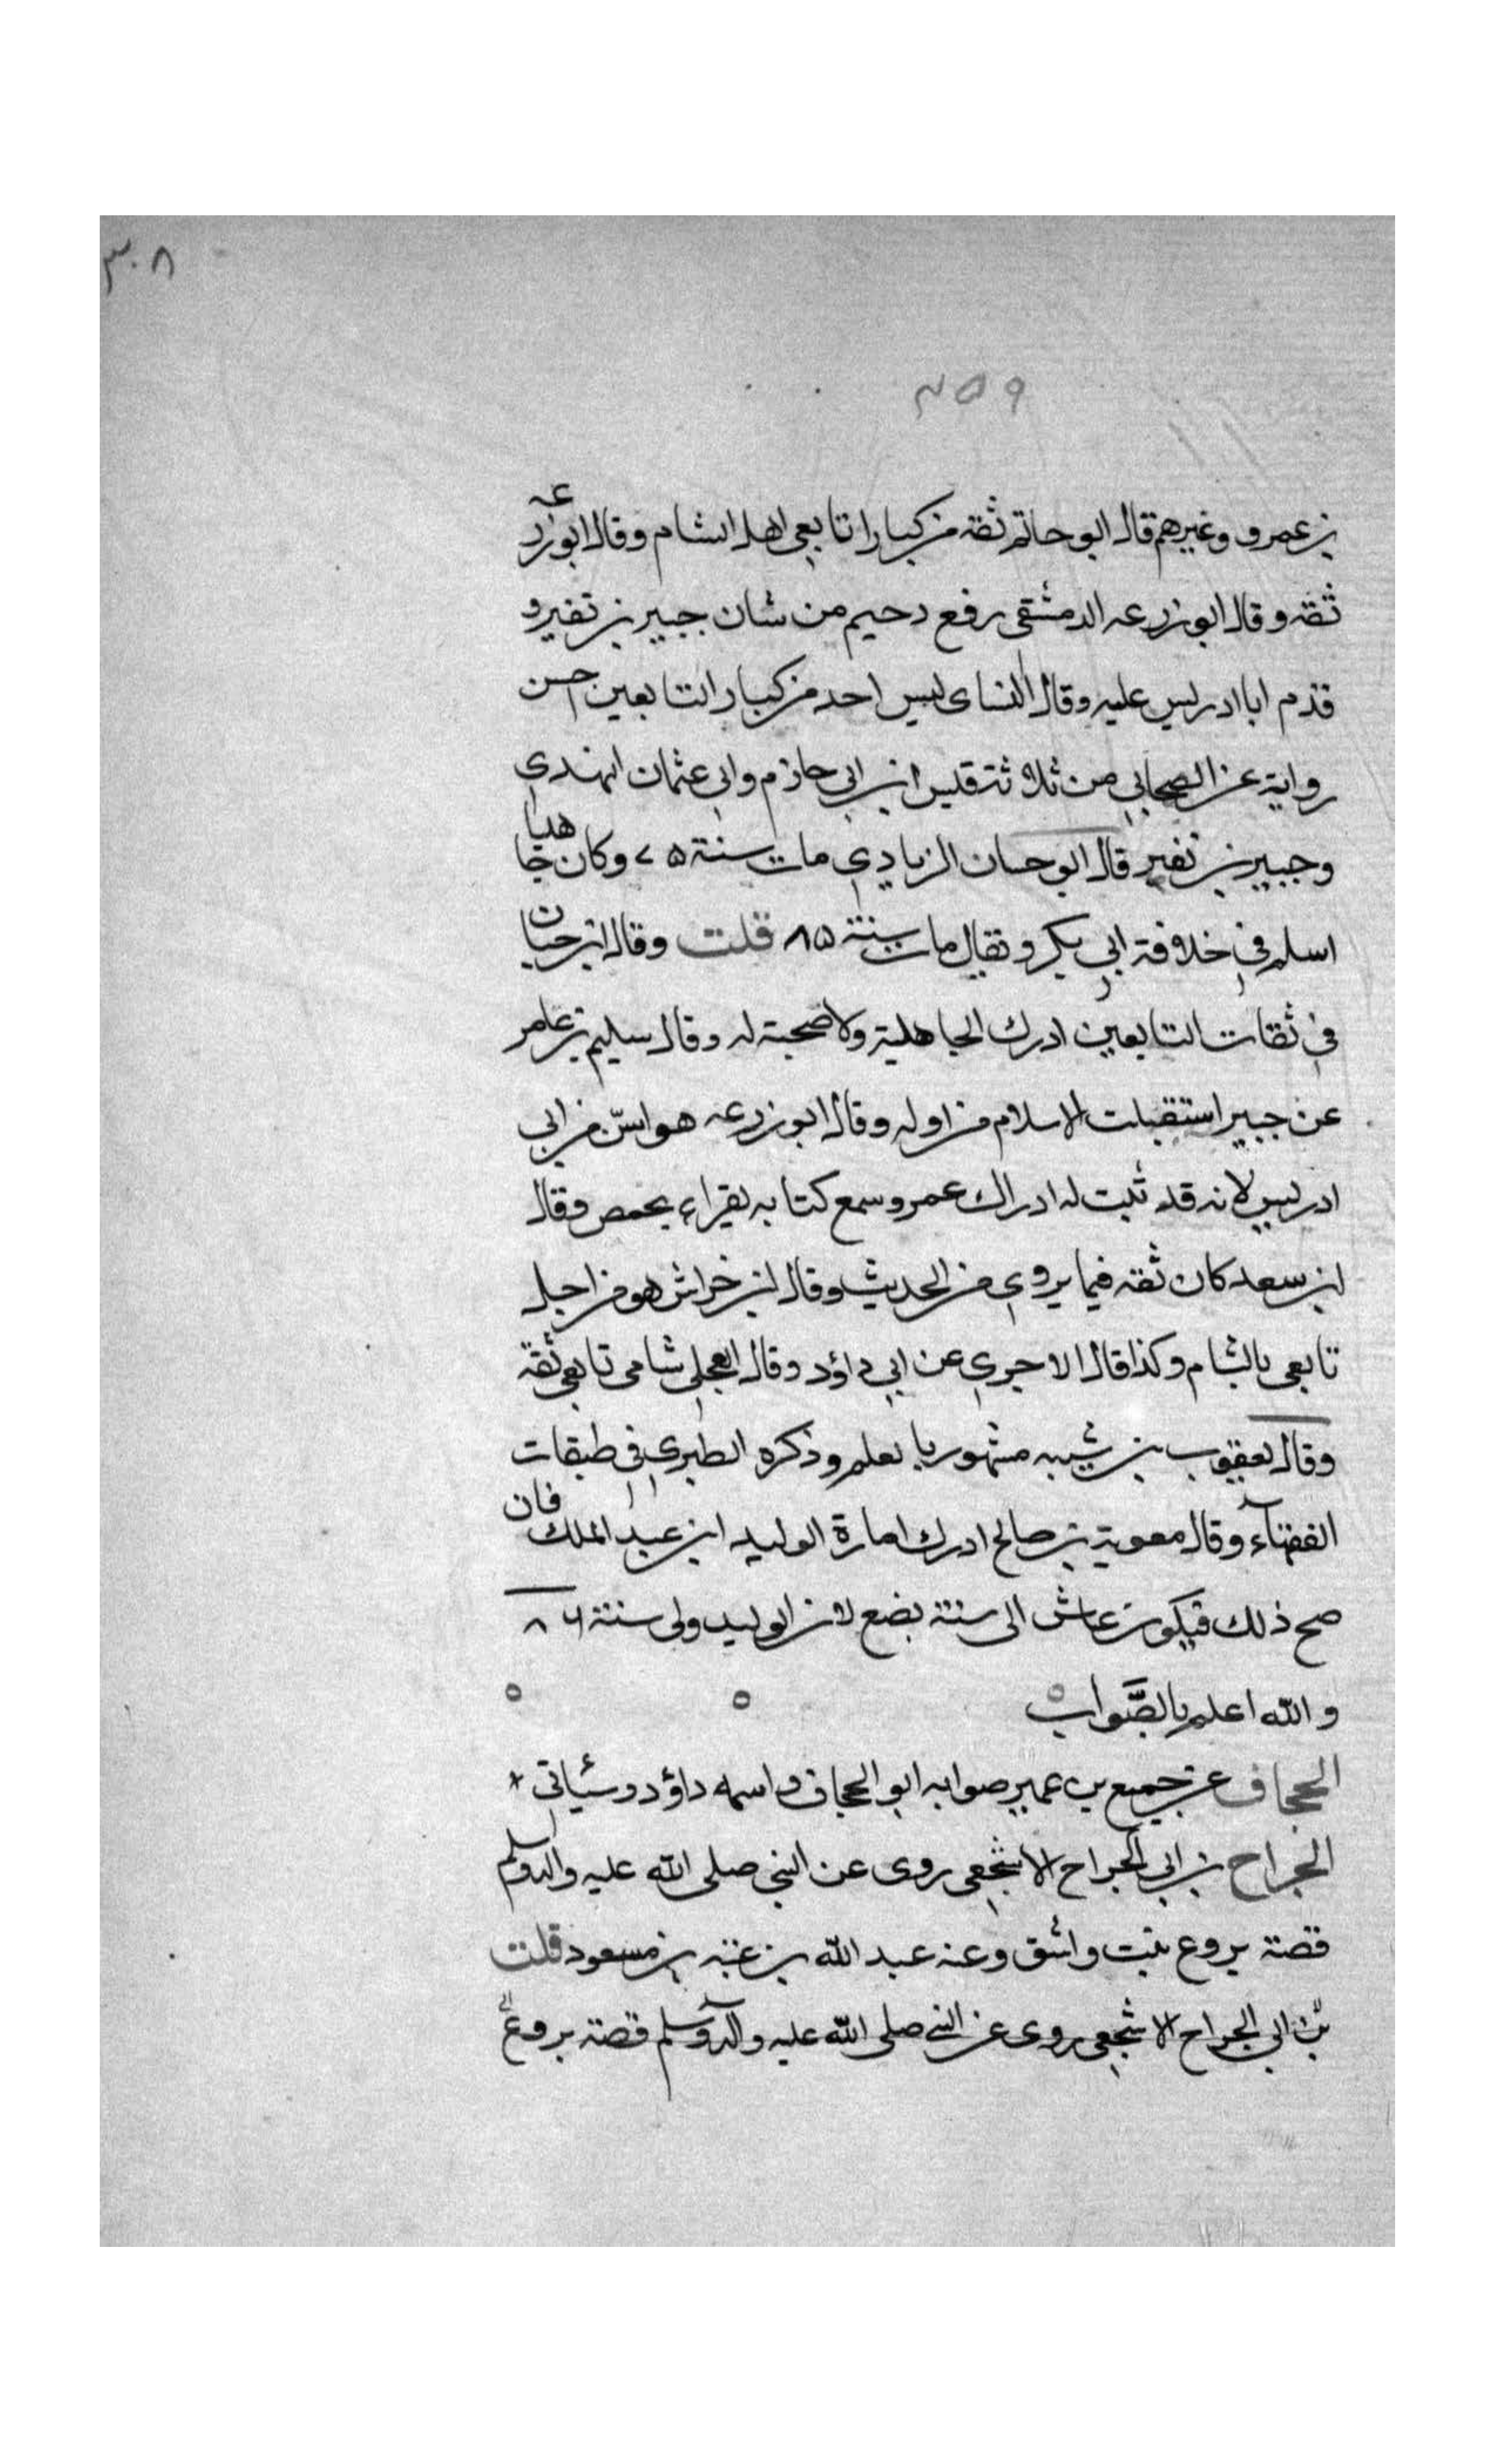 ٣٠٨
٢٥٩
بن عمرو وغيرهم قال ابو حاتم ثقة من كبار اتابعى اهل الشام وقال ابو زرعه
ثقة وقال ابو زرعه الدمشقى رفع دحيم من شان جبير بن نفير و
قدم ابا ادريس عليه وقال النساى ليس احد من كبار التابعين احسن
رواية عن الصحابي من ثلاثة قليس ابن ابي حازم وابي عثمان النهدي
وجبير بن نفير قال ابو حسان الزيادي مات سنة ٧٥ وكان جاهليا
اسلم في خلافة ابي بكر ويقال مات سنة ٨٥ قلت وقال ابن حبان
في ثقات التابعين ادرك الجاهلية ولا صحبة له وقال سليم بن عامر
عن جبير استقبلت الاسلام من اوله وقال ابو زرعه هو اسنّ من ابي
ادريس لانه قد ثبت له ادراك عمر وسمع كتابه يقراء بحمص وقال
ابن سعد كان ثقة فيما يروي من الحديث وقال ابن خراش هو من اجل
تابعى بالشام وكذا قال الاجري عن ابي داؤد وقال العجلي شامى تابعى ثقة
وقال يعقوب بن شيبه مشهور بالعلم وذكره الطبري فى طبقات
الفقهآء وقال معوية بن صالح ادرك امارة الوليد ابن عبد الملك فان
صح ذلك فيكون عاش الى سنة بضع لان الوليد ولى سنة ٨٦
والله اعلم بالصَّواب
الحجاف عن جميع بن عمير صوابه ابو الحجاف واسمه داؤد وسيأتى
الجراح بن ابي الجراح الاشجعى روى عن النبي صلى الله عليه واله وسلم
قصة بروع بنت واشق وعنه عبد الله بن عتبه بن مسعود قلت
بن ابي الجراح الاشجعى روى عن النبي صلى الله عليه واله وسلم قصة بروع